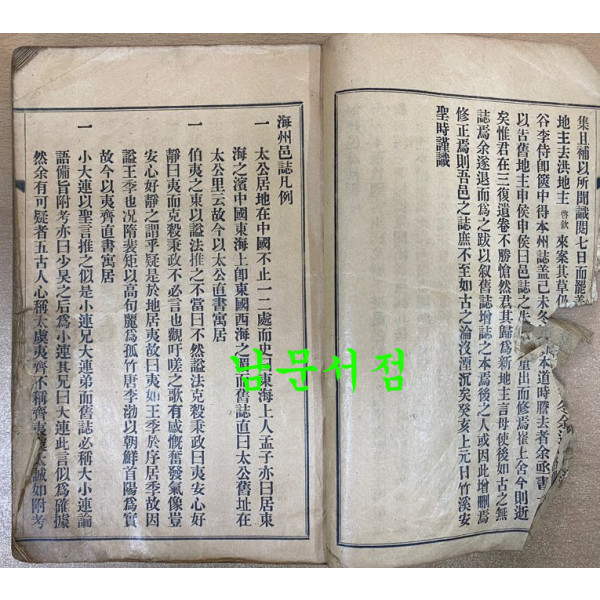 集且補以所聞識閱七日而罷蓋
地主去洪地主啓欽來案其草仍
谷李侍卽篋中得本州誌蓋己未冬本道時謄去者余亟書
以告舊地主申侯申侯曰邑誌之失重出而修焉崔上舍今則逝
矣惟君在三復遺卷不勝愴然君其歸爲新地主言毋使後如古之無
誌焉余遂退而爲之跋以叙舊誌增誌之本焉後之人或因此增刪焉
修正焉則吾邑之誌庶不至如古之淪沒湮沉矣癸亥上元日竹溪安
聖時謹識
海州邑誌凡例
一 太公居地在中國不止一二處而史曰東海上人孟子亦曰居東
海之濱中國東海上卽東國西海之 而舊誌直曰太公舊址在
太公里云故今以太公直書寓居
一 伯夷之東以諡法推之不當曰不然諡法克殺秉政曰夷安心好
靜曰夷而克殺秉政不必言也觀吁嗟之歌有感慨奮發氣像豈
安心好靜之謂乎疑是於地居夷故曰夷如王季於序居季故因
諡王季也况隋裴矩以高句麗爲孤竹唐李渤以朝鮮首陽爲實
故今以夷齊直書寓居
一 小大連以聖言推之似是小連兄大連弟而舊誌必稱大小連論
語備旨附考亦曰少昊之后爲小連其兄曰大連此言似爲確據
然余有可疑者五古人心稱太虞夷齊不稱齊夷 誠如附考
남문서점